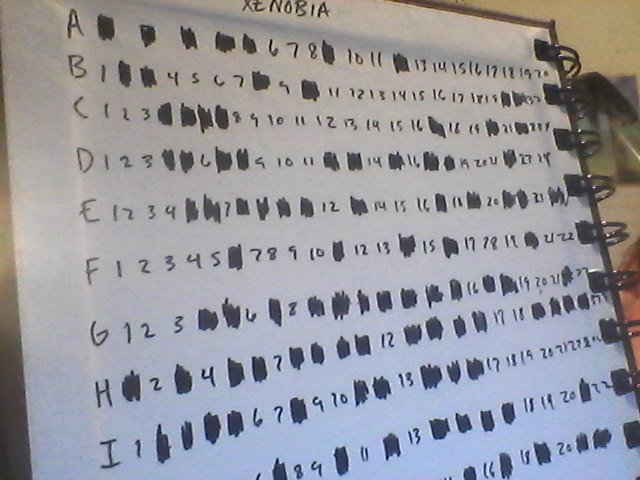 XENOBIA
A 6 7 8 10 11 13 14 15 16 17 18 19 20
B 1 4 5 6 7 9 11 12 13 14 15 16 17 18 19
C 1 2 3 8 9 10 11 12 13 14 15 16 18 19 21
D 1 2 3 6 9 10 11 14 16 19 20 21
E 1 2 3 4 7 12 14 15 16 18 20
F 1 2 3 4 5 7 8 9 10 12 13 15 17 18 19 21 22
G 1 2 3 6 8 16 19 20 21
H 2 4 7 12 17 18
I 1 6 7 9 10 13 17 18 19 20 21 22
8 9 11 13 18 19 20 22
16 18 20